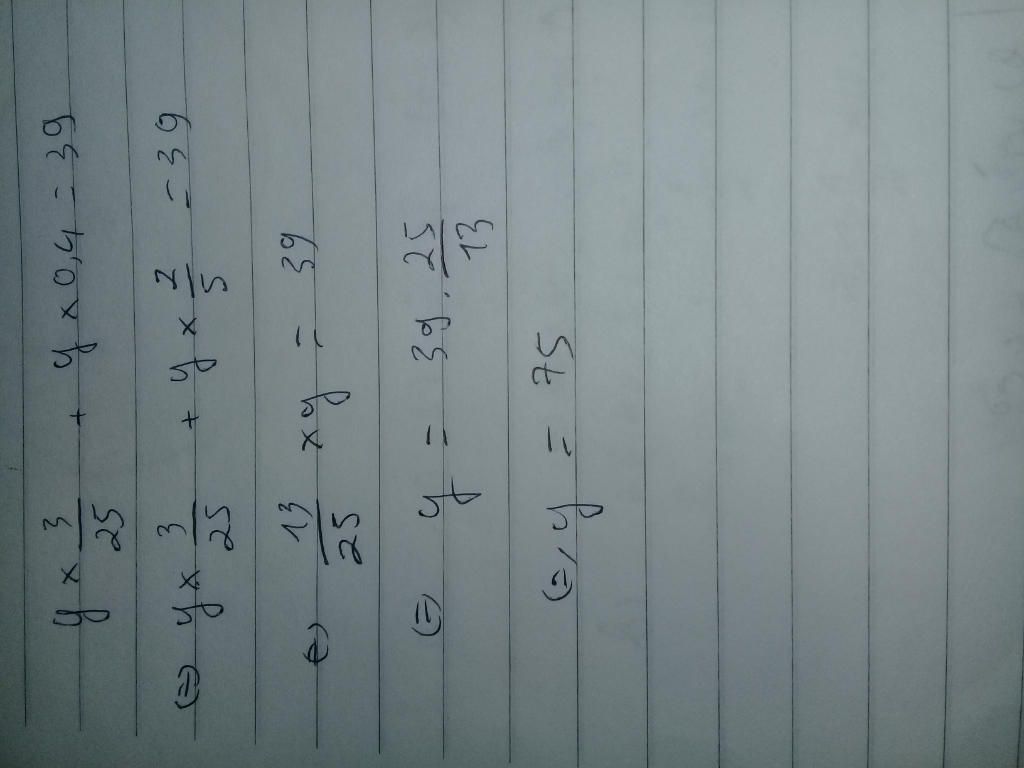 y × 3/25 + y × 0,4 = 39
⇔ y × 3/25 + y × 2/5 = 39
⇔ 13/25 × y = 39
⇔ y = 39 . 25/13
⇔ y = 75